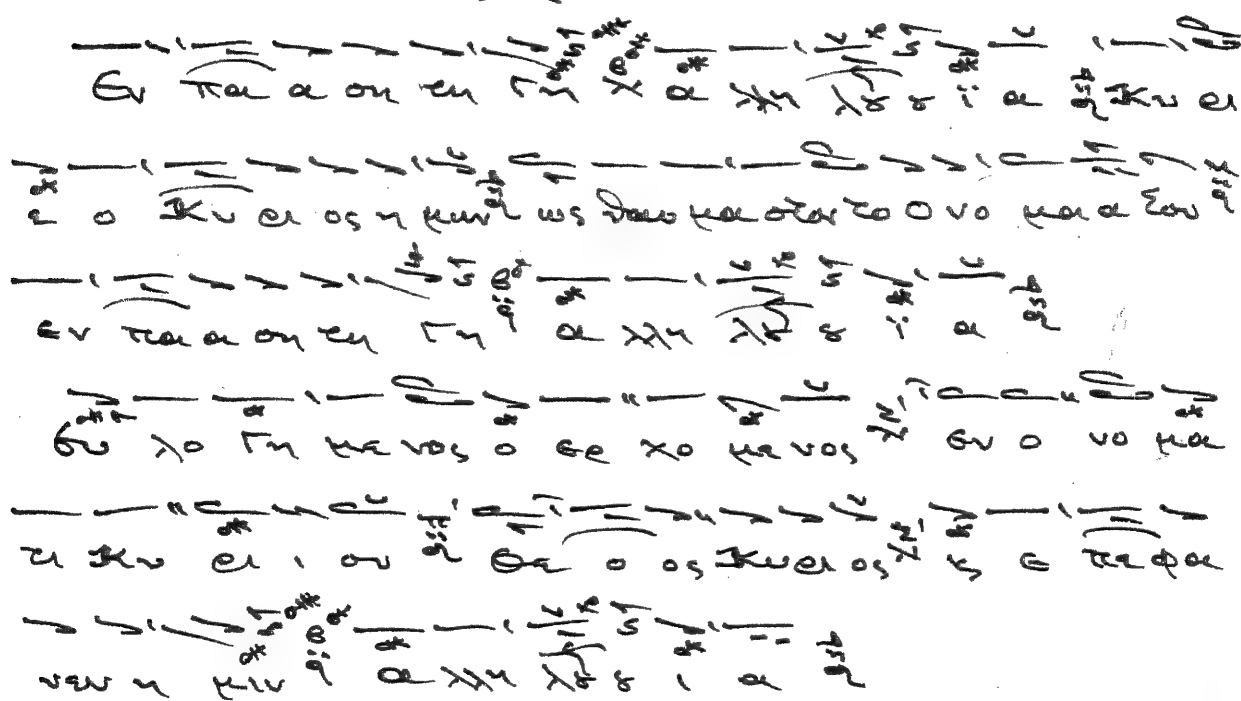 Εν πα α ση τη Γη α λλη λȣ ȣ ϊ α Κυ ρι
ε ο Κυ ρι ος η μων ως θαυ μα στον το Ο νο μα α Σου
εν πα α ση τη Γη α λλη λȣ ȣ ϊ α
Ευ λο Γη με νος ο ερ χο με νος εν ο νο μα
τι Κυ ρι ι ου Θε ο ος Κυ ρι ος ϗ ε πε φα
νεν η μιν α λλη λȣ ȣ ι α